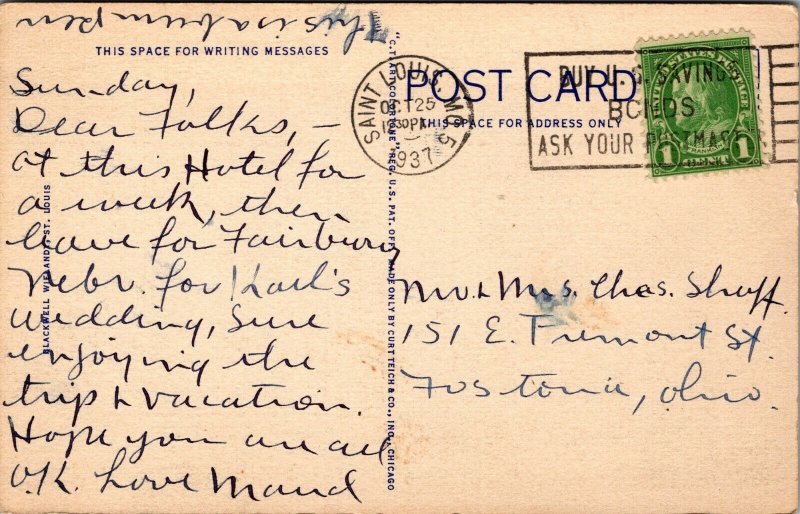 This is a bum pen
THIS SPACE FOR WRITING MESSAGES
Sunday,
Dear Folks, –
at this Hotel for
a week, then
leave for Fairbury
Nebr. for Karl's
wedding, Sure
enjoying the
trip & vacation.
Hope you are all
O.K. Love Maud
BLACKWELL WIELANDY, ST. LOUIS
"C.T. ART-COLORTONE" REG. U.S. PAT. OFF. MADE ONLY BY CURT TEICH & CO., INC., CHICAGO
SAINT LOUIS, MO. 5
OCT 25
1230PM
1937
POST CARD
THIS SPACE FOR ADDRESS ONLY
BUY U.S. SAVINGS
BONDS
ASK YOUR POSTMASTER
UNITED STATES POSTAGE
FRANKLIN
1 CENT 1
Mr. & Mrs. Chas. Shuff.
151 E. Fremont St.
Fostoria, Ohio.